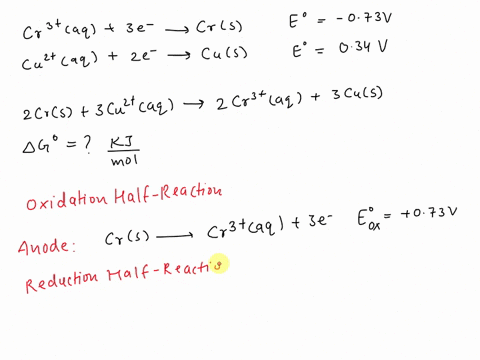 Cr³⁺(aq) + 3e⁻ → Cr(s) E° = -0.73V
Cu²⁺(aq) + 2e⁻ → Cu(s) E° = 0.34 V
2Cr(s) + 3Cu²⁺(aq) → 2Cr³⁺(aq) + 3Cu(s)
ΔG° = ? KJ/mol
Oxidation Half-Reaction
Anode: Cr(s) → Cr³⁺(aq) + 3e⁻ E°ox = +0.73V
Reduction Half-Reactio